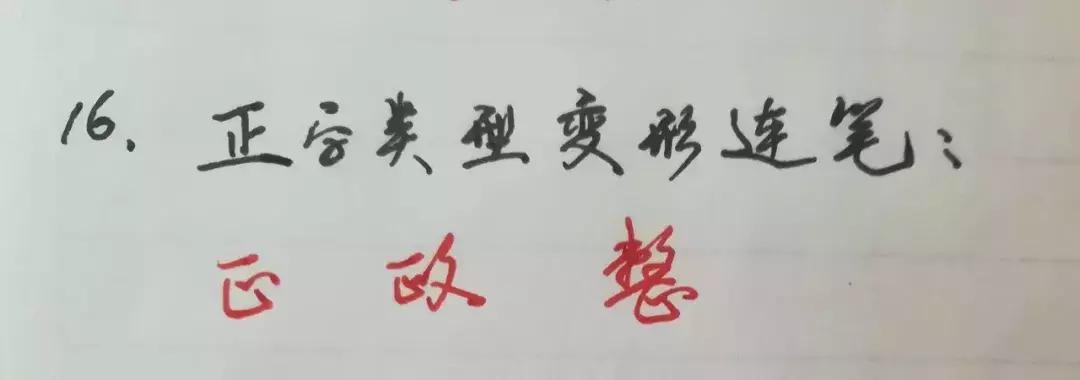 16. 正字类型变形连笔:
正 政 整